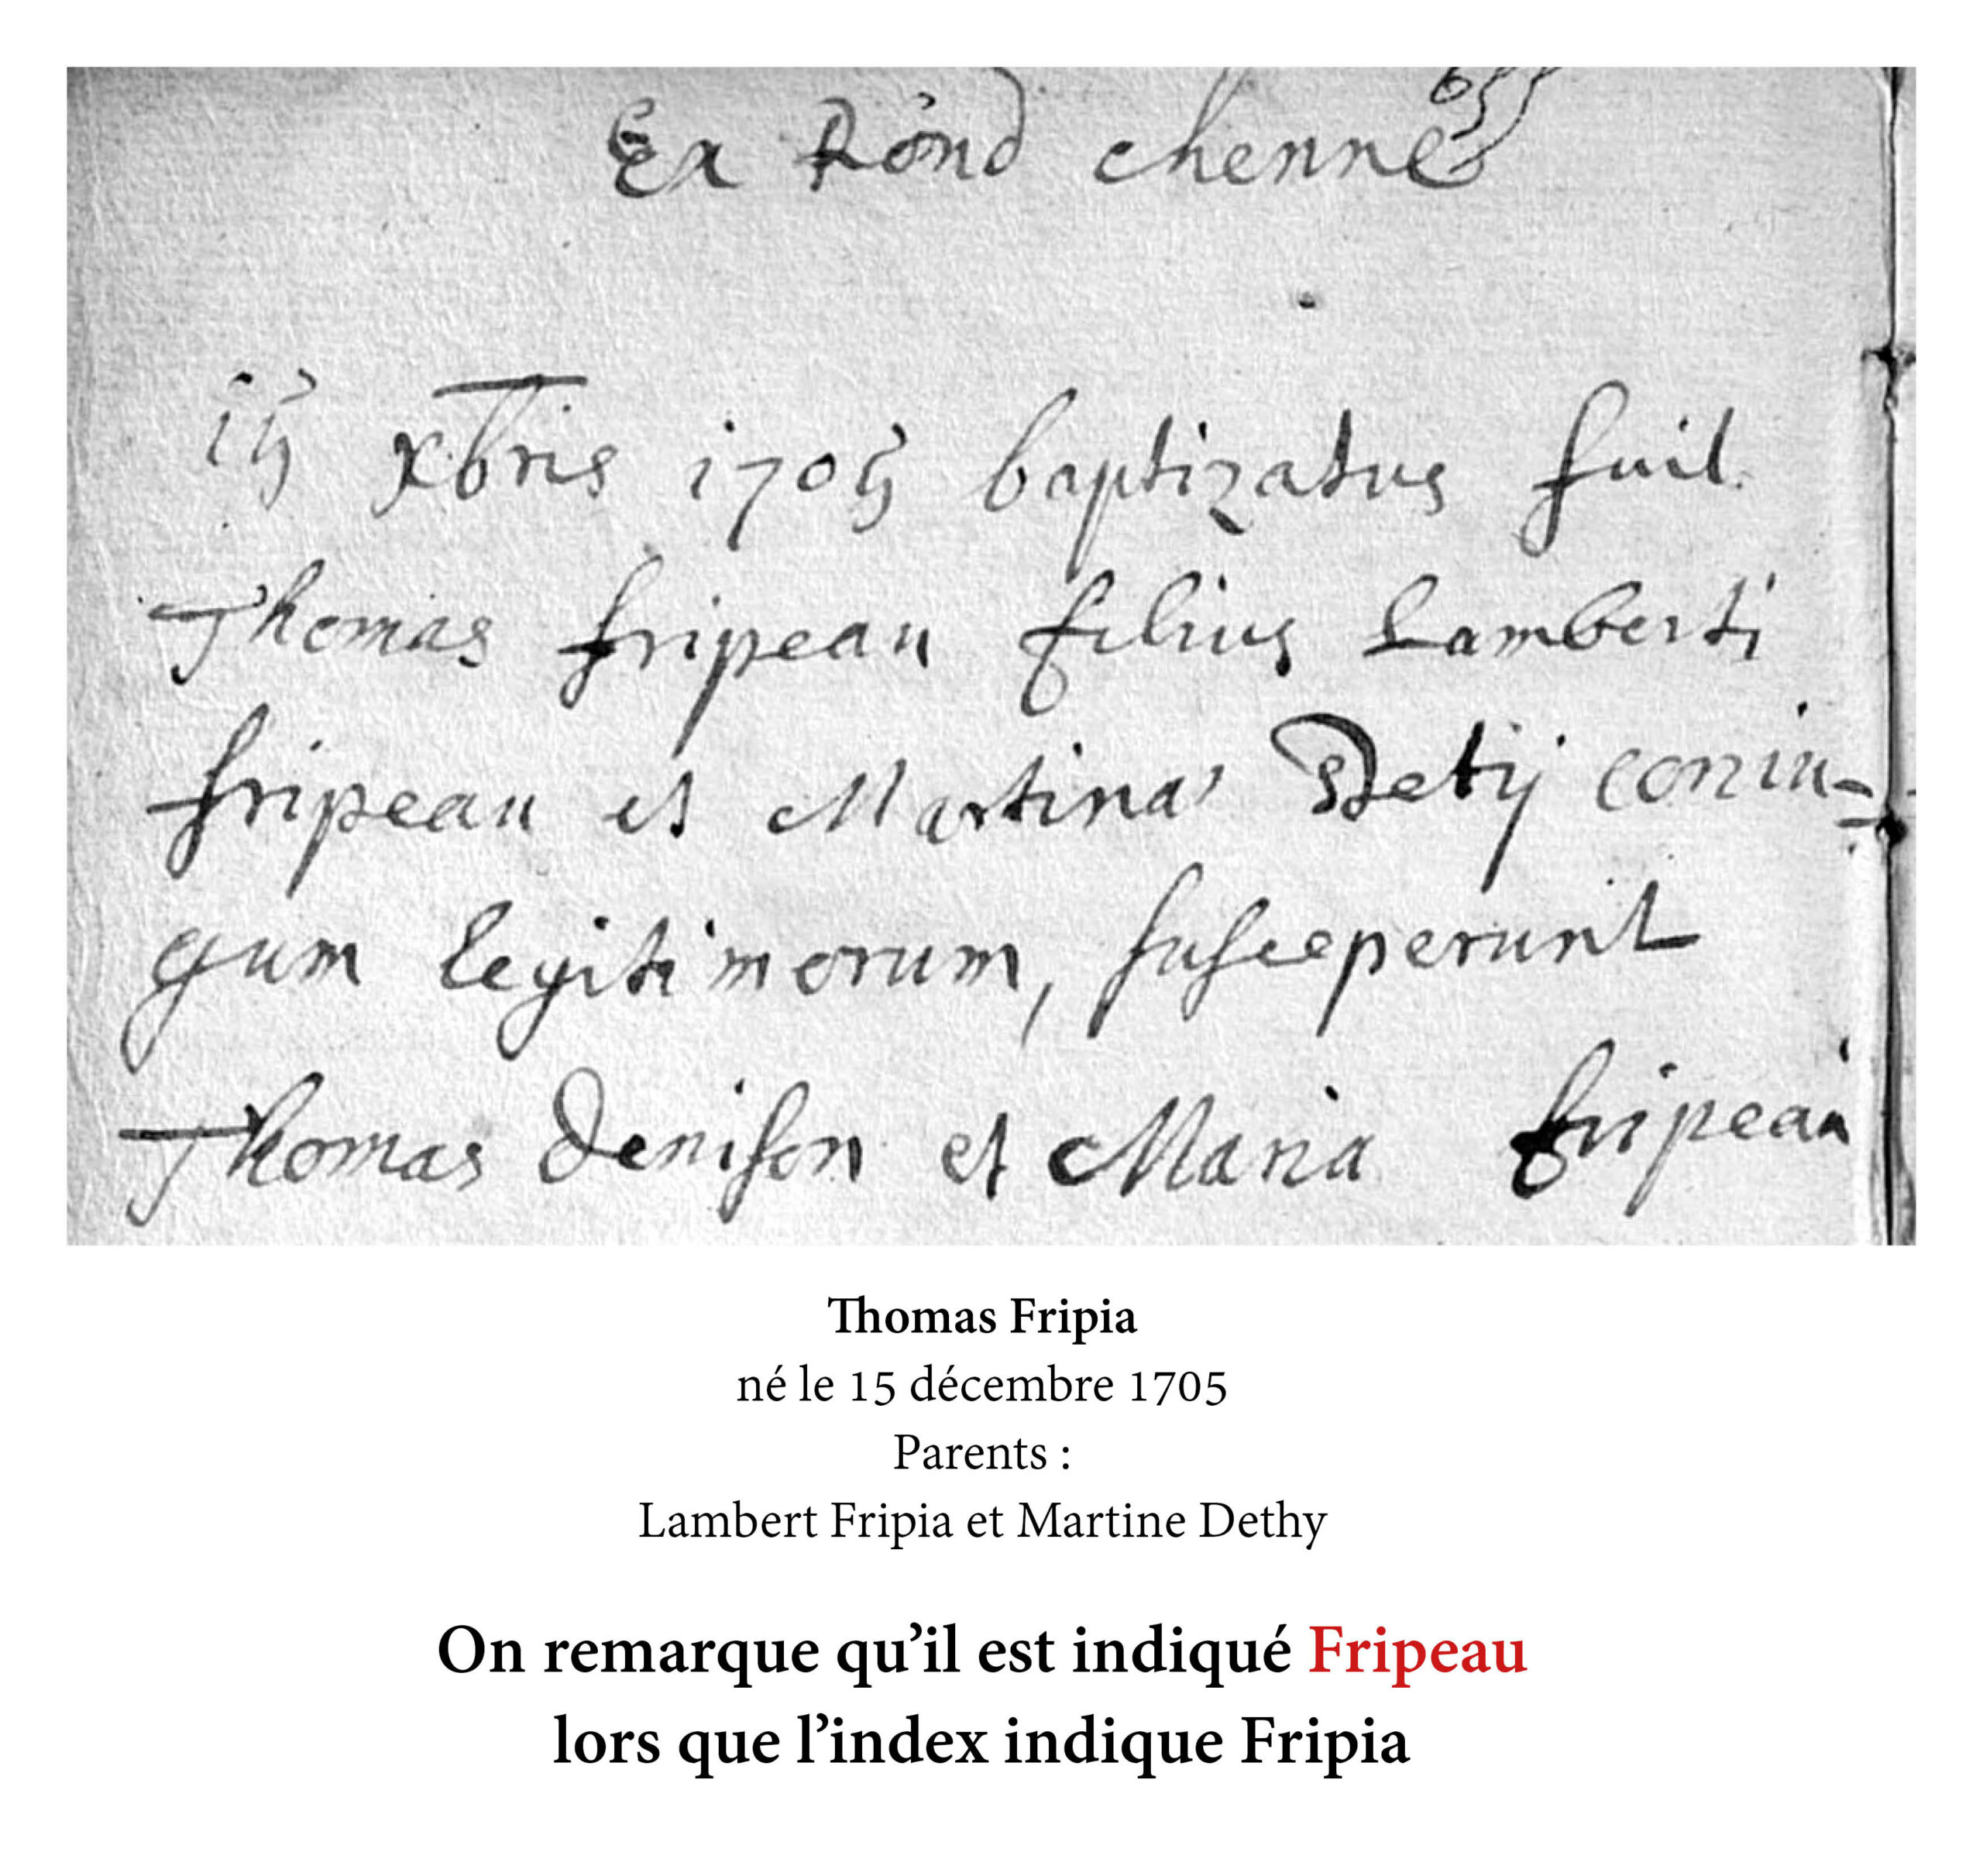 Ex Rond chenne
15 Xbris 1705 baptizatus fuit
Thomas fripeau filius Lamberti
fripeau et Martina Detij coniu=
gum legitimorum, susceperunt
Thomas Denison et Maria fripeau
Thomas Fripia
né le 15 décembre 1705
Parents :
Lambert Fripia et Martine Dethy
On remarque qu’il est indiqué Fripeau
lors que l’index indique Fripia